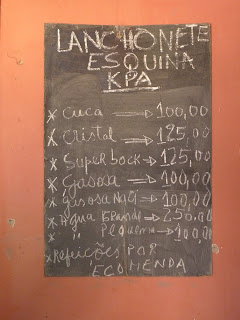 LANCHONETE
ESQUINA
KPA
* Cuca ⇒ 100,00
* Cristal ⇒ 125,00
* Super bock ⇒ 125,00
* Gasosa ⇒ 100,00
* gasosa Nacl ⇒ 100,00
* Agua GRAnde ⇒ 250,00
* " Pequena ⇒ 100,00
* Refeições POR
ECOMENDA